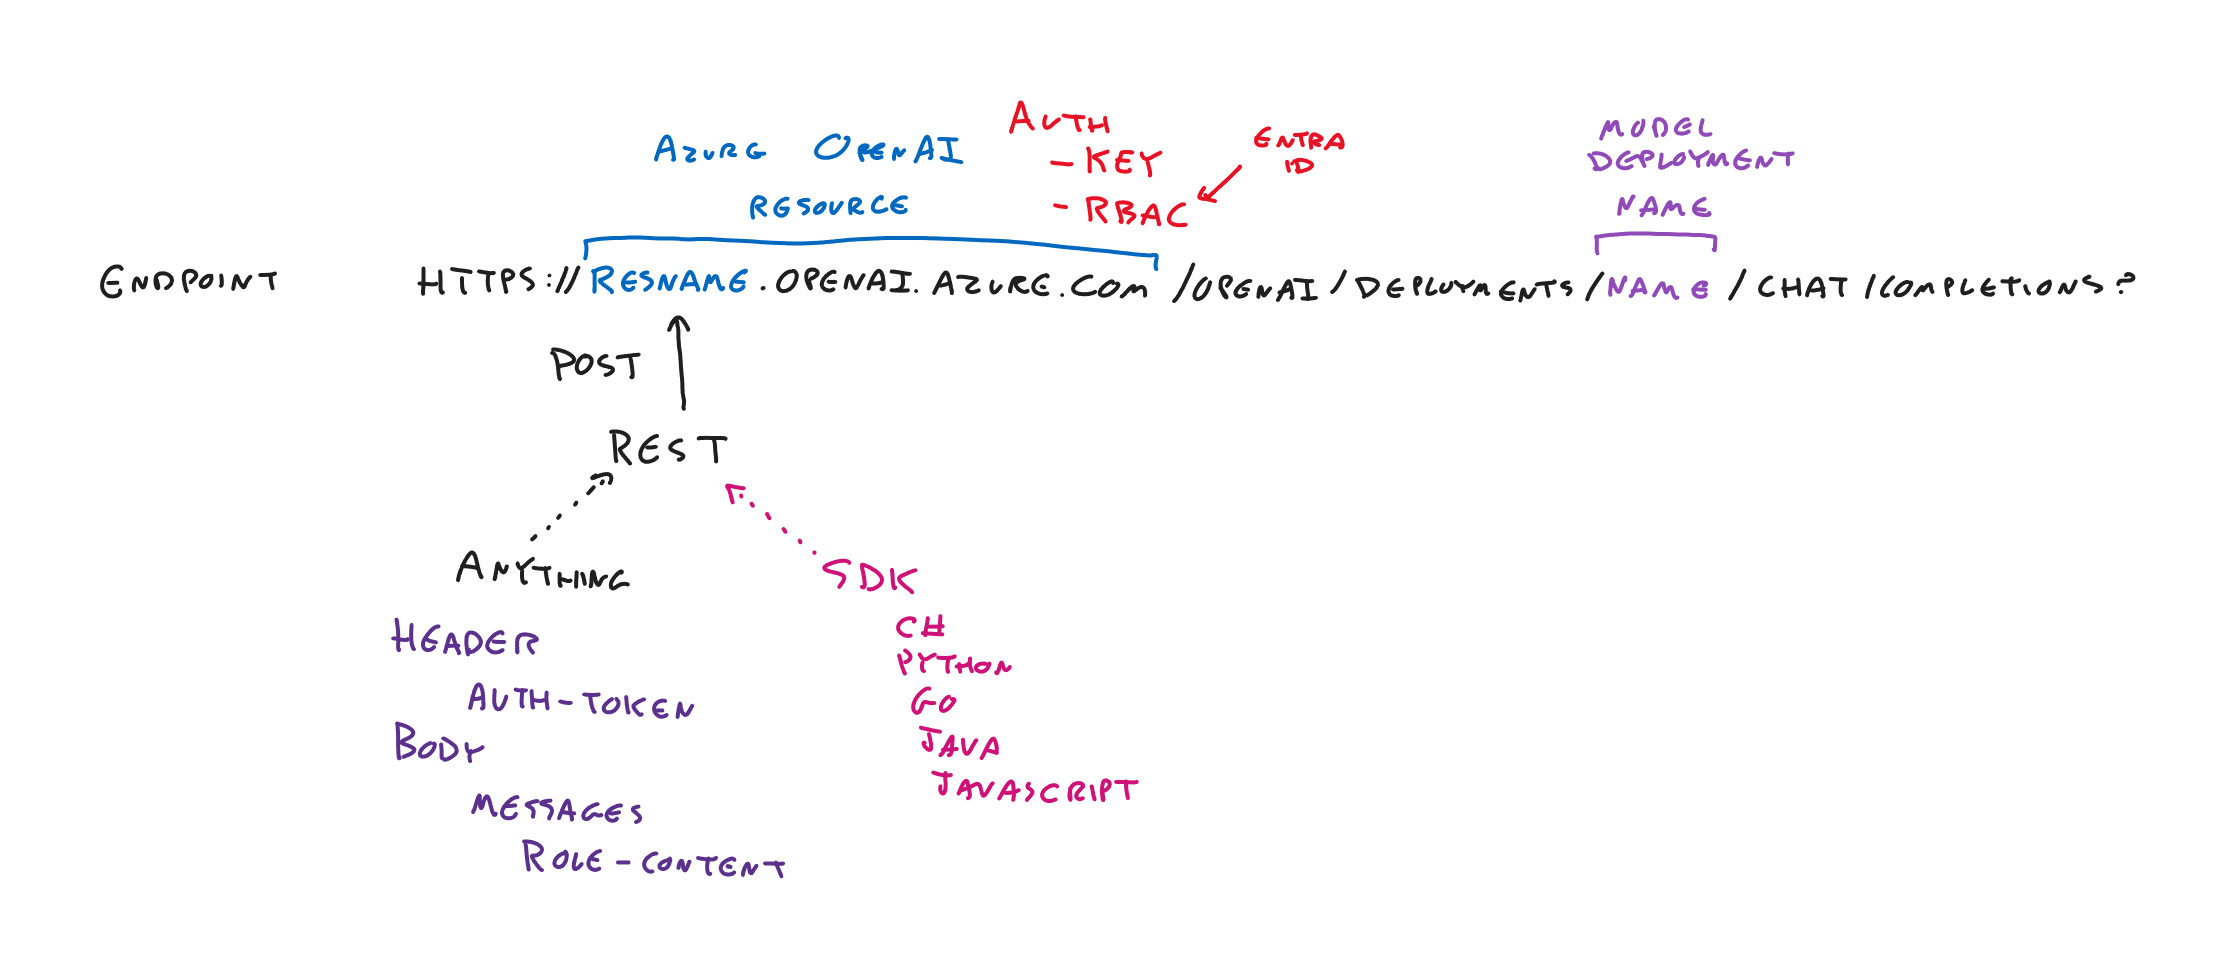 AZURE OPENAI
RESOURCE
AUTH
- KEY
- RBAC
ENTRA
ID
MODEL
DEPLOYMENT
NAME
ENDPOINT HTTPS://RESNAME.OPENAI.AZURE.COM/OPENAI/DEPLOYMENTS/NAME/CHAT/COMPLETIONS?
POST
REST
ANYTHING
HEADER
AUTH-TOKEN
BODY
MESSAGES
ROLE-CONTENT
SDK
C#
PYTHON
GO
JAVA
JAVASCRIPT